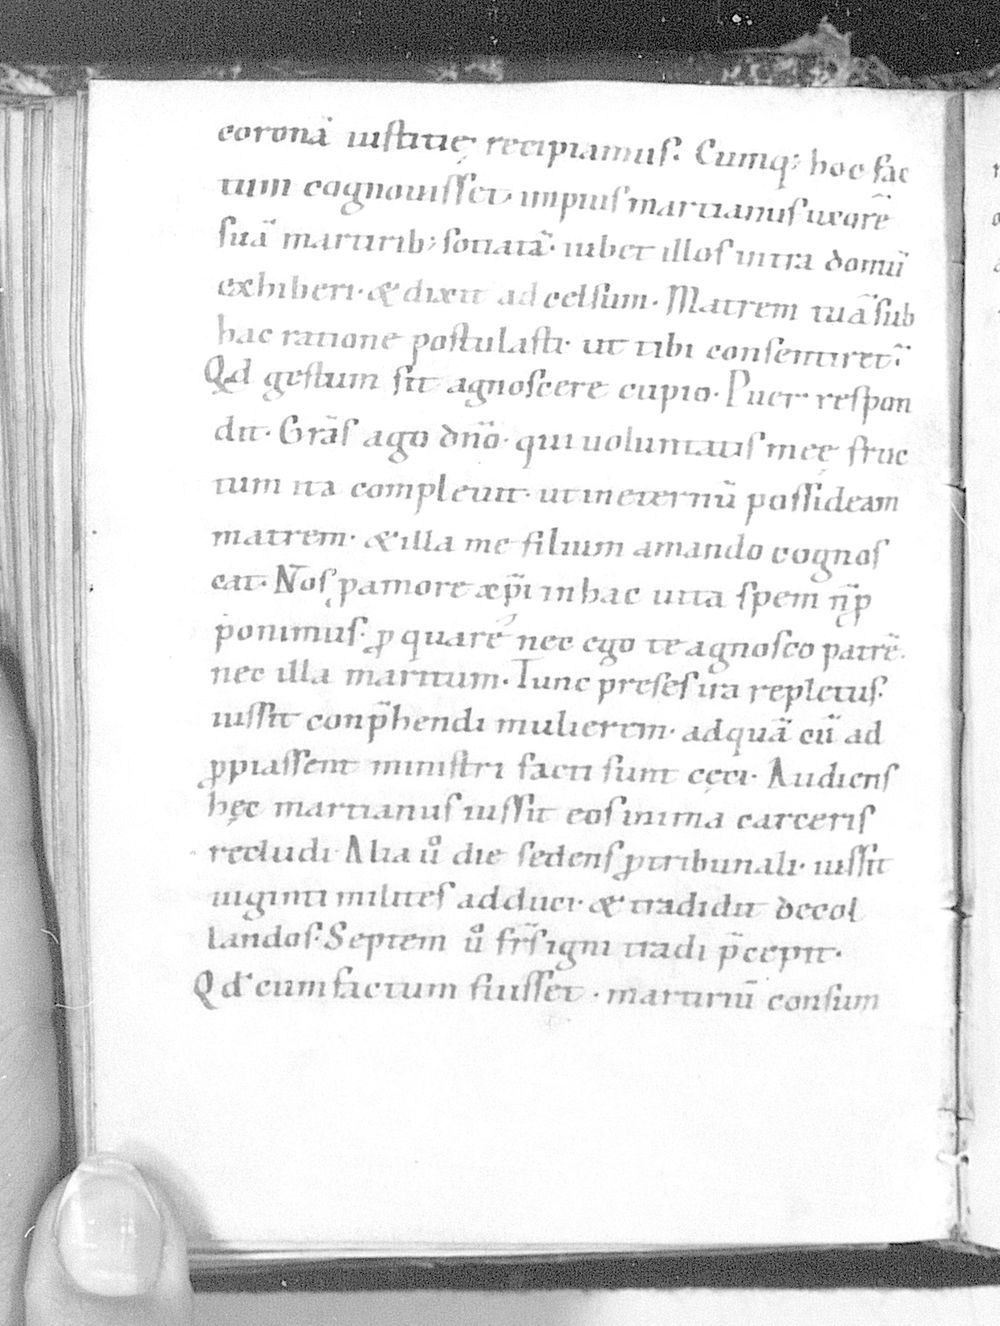 coronā iustitię recipiamus. Cumq; hoc fac
tum cognouisset impius martianus uxorē
suā martirib; sotiatā. iubet illos intra domū
exhiberi. & dixit ad celsum. Matrem tuā sub
hac ratione postulasti. ut tibi consentiret.
Qd gestum sit agnoscere cupio. Puer respon
dit. Grās ago dn̄o. qui uoluntatis meę fruc
tum ita compleuit. ut in eternū possideam
matrem. & illa me filium amando cognos
cat. Nos ꝑ amore xp̄i in hac uita spem
ponimus. ꝓ quare nec ego te agnosco patrē.
nec illa maritum. Tunc preses ira repletus.
iussit conp̄hendi mulierem. ad quā cū ad
ꝓpiassent ministri facti sunt cęci. Audiens
hęc martianus iussit eos in ima carceris
recludi. Alia ů die sedens ꝓ tribunali. iussit
uiginti milites adduci. & tradidit decol
landos. Septem ů fr̄s igni tradi p̄cepit.
Qd cum factum fuisset. martiriū consum